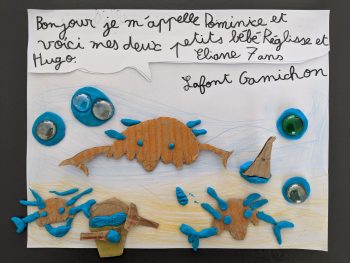 Bonjour je m'appelle Dominice et
voici mes deux petits bébé Réglisse et
Hugo.
Eliane 7 ans
Lafont Gamichon